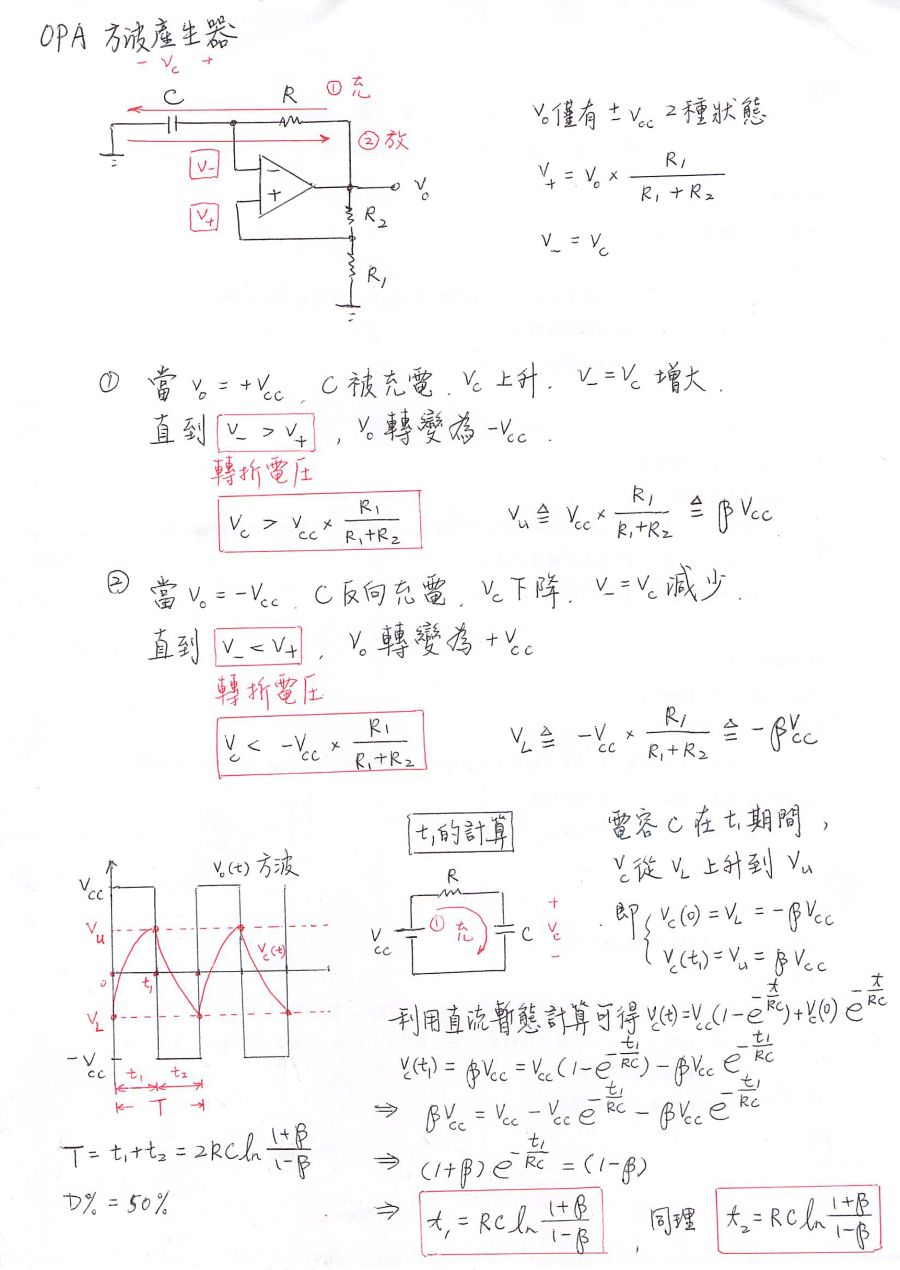 OPA 方波產生器
- Vc +
C R ①充
②放
V-
V+
- +
Vo
R2
R1
Vo僅有 ± Vcc 2種狀態
V+ = Vo × R1 / (R1 + R2)
V- = Vc
① 當 Vo = +Vcc、C 被充電、Vc 上升、V- = Vc 增大、
直到 V- > V+，Vo 轉變為 -Vcc、
轉折電圧
Vc > Vcc × R1 / (R1+R2) Vu ≜ Vcc × R1 / (R1+R2) ≜ β Vcc
② 當 Vo = -Vcc、C 反向充電、Vc 下降、V- = Vc 減少、
直到 V- < V+、Vo 轉變為 +Vcc
轉折電圧
Vc < -Vcc × R1 / (R1+R2) VL ≜ -Vcc × R1 / (R1+R2) ≜ -βVcc
Vo(t) 方波
Vcc
Vu
0
t1
Vc(t)
VL
-Vcc
t1 t2
T
T = t1 + t2 = 2RC ln (1+β)/(1-β)
D% = 50%
t1的計算
R
Vcc ①充 C + Vc -
電容 C 在 t1 期間，
Vc 從 VL 上升到 Vu
即 { Vc(0) = VL = -βVcc
Vc(t1) = Vu = βVcc
利用直流暫態計算可得 Vc(t) = Vcc(1-e^(-t/RC)) + Vc(0) e^(-t/RC)
Vc(t1) = βVcc = Vcc(1-e^(-t1/RC)) - βVcc e^(-t1/RC)
⇒ βVcc = Vcc - Vcc e^(-t1/RC) - βVcc e^(-t1/RC)
⇒ (1+β) e^(-t1/RC) = (1-β)
⇒ t1 = RC ln (1+β)/(1-β) ，同理 t2 = RC ln (1+β)/(1-β)